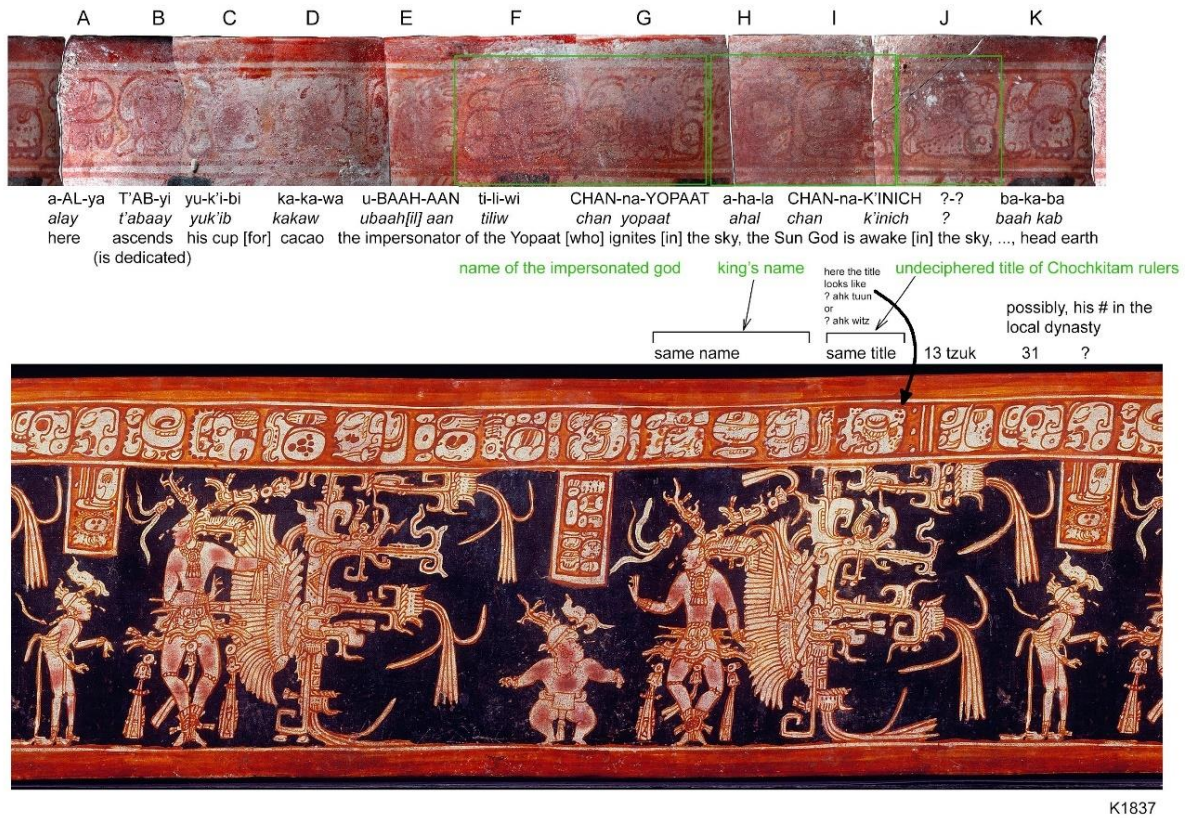 A B C D E F G H I J K
a-AL-ya T'AB-yi yu-k'i-bi ka-ka-wa u-BAAH-AAN ti-li-wi CHAN-na-YOPAAT a-ha-la CHAN-na-K'INICH ?-? ba-ka-ba
alay t'abaay yuk'ib kakaw ubaah[il] aan tiliw chan yopaat ahal chan k'inich ? baah kab
here ascends his cup [for] cacao the impersonator of the Yopaat [who] ignites [in] the sky, the Sun God is awake [in] the sky, ..., head earth
(is dedicated)
name of the impersonated god king's name undeciphered title of Chochkitam rulers
here the title
looks like
? ahk tuun
or
? ahk witz
possibly, his # in the
local dynasty
same name same title 13 tzuk 31 ?
K1837